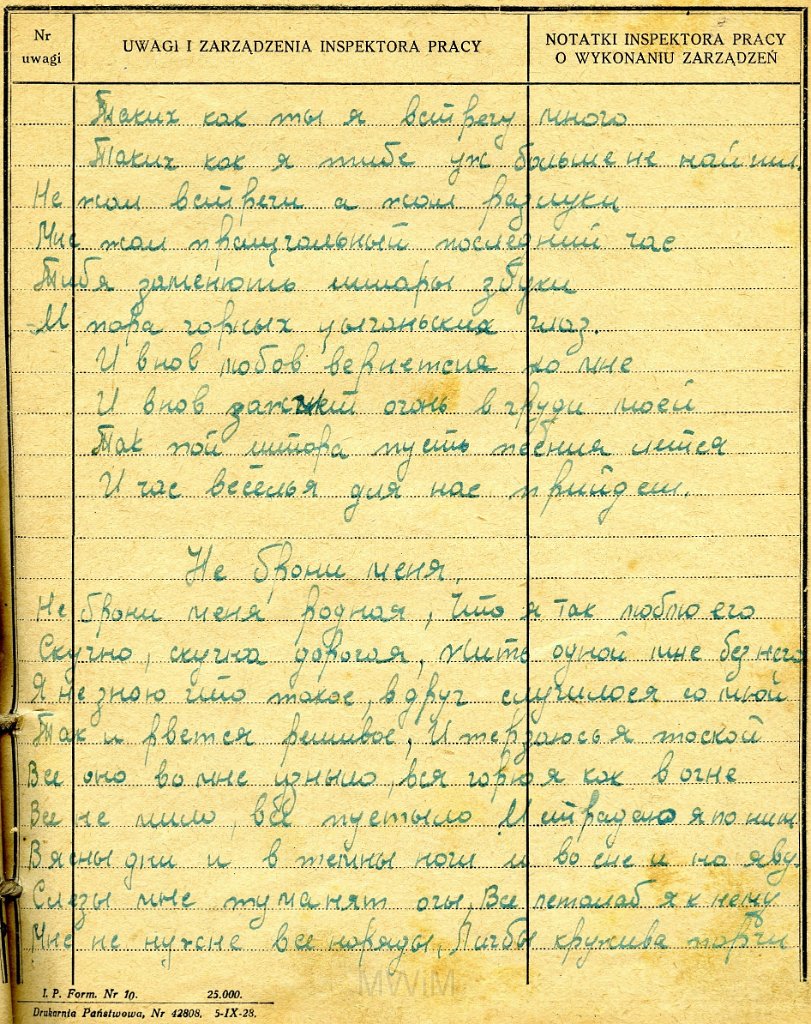 Nr uwagi
UWAGI I ZARZĄDZENIA INSPEKTORA PRACY
NOTATKI INSPEKTORA PRACY O WYKONANIU ZARZĄDZEŃ
Таких как ты я встречу много
Таких как я тибе уж больше не найти.
Не жал встречи а жал разлуки
Мне жал пращчальный последний час
Тибя заменють шшары збуки
И пара чорных цыганьских глаз.
И внов любов вернетсия ко мне
И внов огонь в груди моей
Так пой пусть песния летса
И час веселья для нас прийдет.
Не брони меня.
Не брони меня родная, Что я так люблю его
Скучно, скучна дорогая, Жить одной мне без него
Я не зною што такое, вдруг случилося со мной
Так и рвется решивое, И терзаюсь я тоской
Все оно во мне изныло, вся горю я как в огне
Все не мило, всё пустыло И страдаю я по ним
В ясны дни и в темны ночи и во сне и на яву
Слезы мне туманят очы, Все летала б я к нему
Мне не нужне все наряды, кружива парчи
MWiM
I. P. Form. Nr 10. 25.000.
Drukarnia Państwowa, Nr 42808. 5-IX-28.